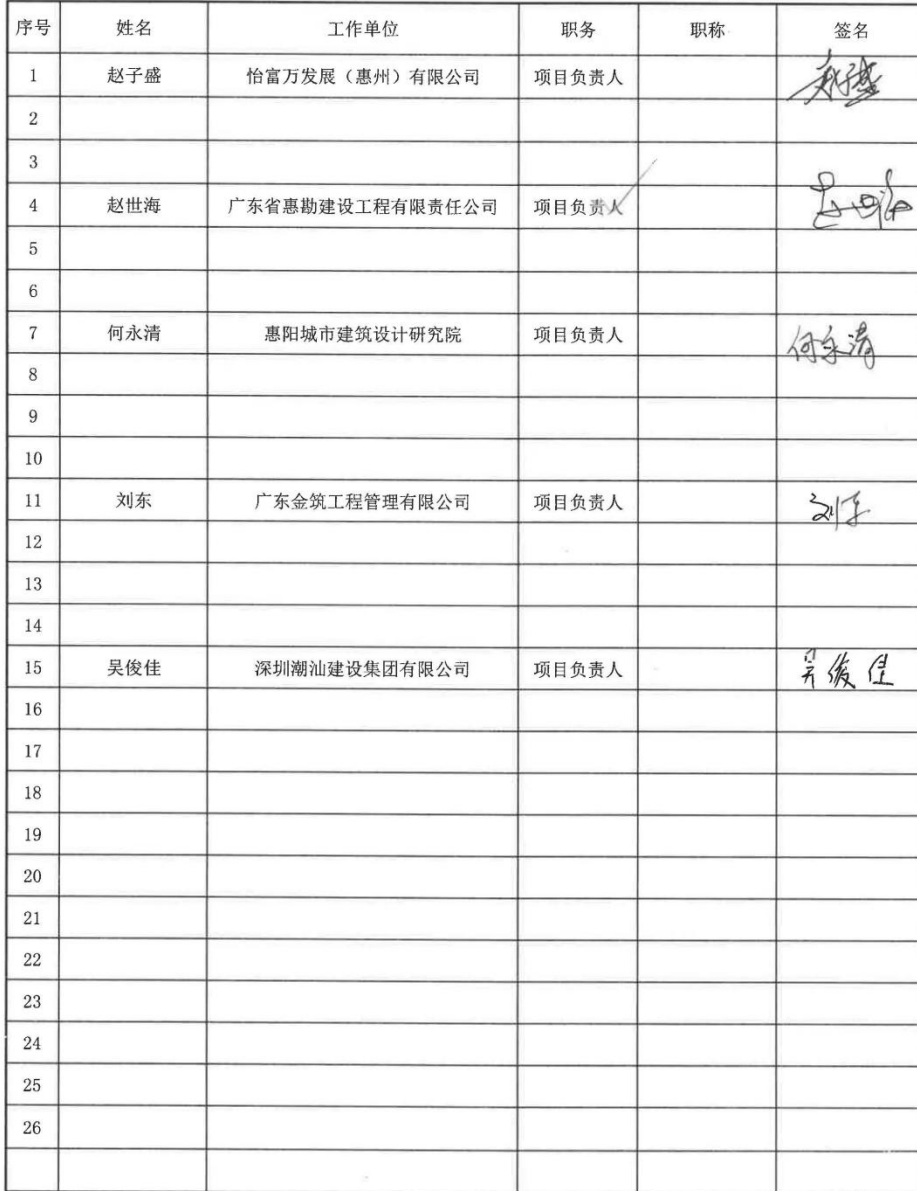 序号 姓名 工作单位 职务 职称 签名
1 赵子盛 怡富万发展（惠州）有限公司 项目负责人 赵子盛
2
3
4 赵世海 广东省惠勘建设工程有限责任公司 项目负责人 赵世海
5
6
7 何永清 惠阳城市建筑设计研究院 项目负责人 何永清
8
9
10
11 刘东 广东金筑工程管理有限公司 项目负责人 刘东
12
13
14
15 吴俊佳 深圳潮汕建设集团有限公司 项目负责人 吴俊佳
16
17
18
19
20
21
22
23
24
25
26